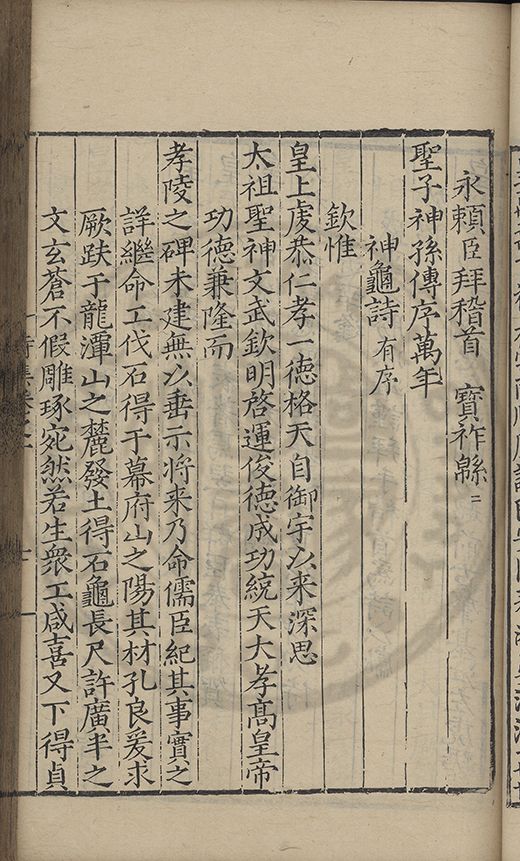 永賴臣拜稽首 寶祚緜〻
聖子神孫傳序萬年
神龜詩有序
欽惟
皇上虔恭仁孝一德格天自御宇以來深思
太祖聖神文武欽明啓運俊德成功統天大孝髙皇帝
功德兼隆而
孝陵之碑未建無以垂示将來乃命儒臣紀其事實之
詳繼命工伐石得于幕府山之陽其材孔良爰求
厥趺于龍潭山之麓發土得石龜長尺許廣半之
文玄蒼不假雕琢宛然若生衆工咸喜又下得貞